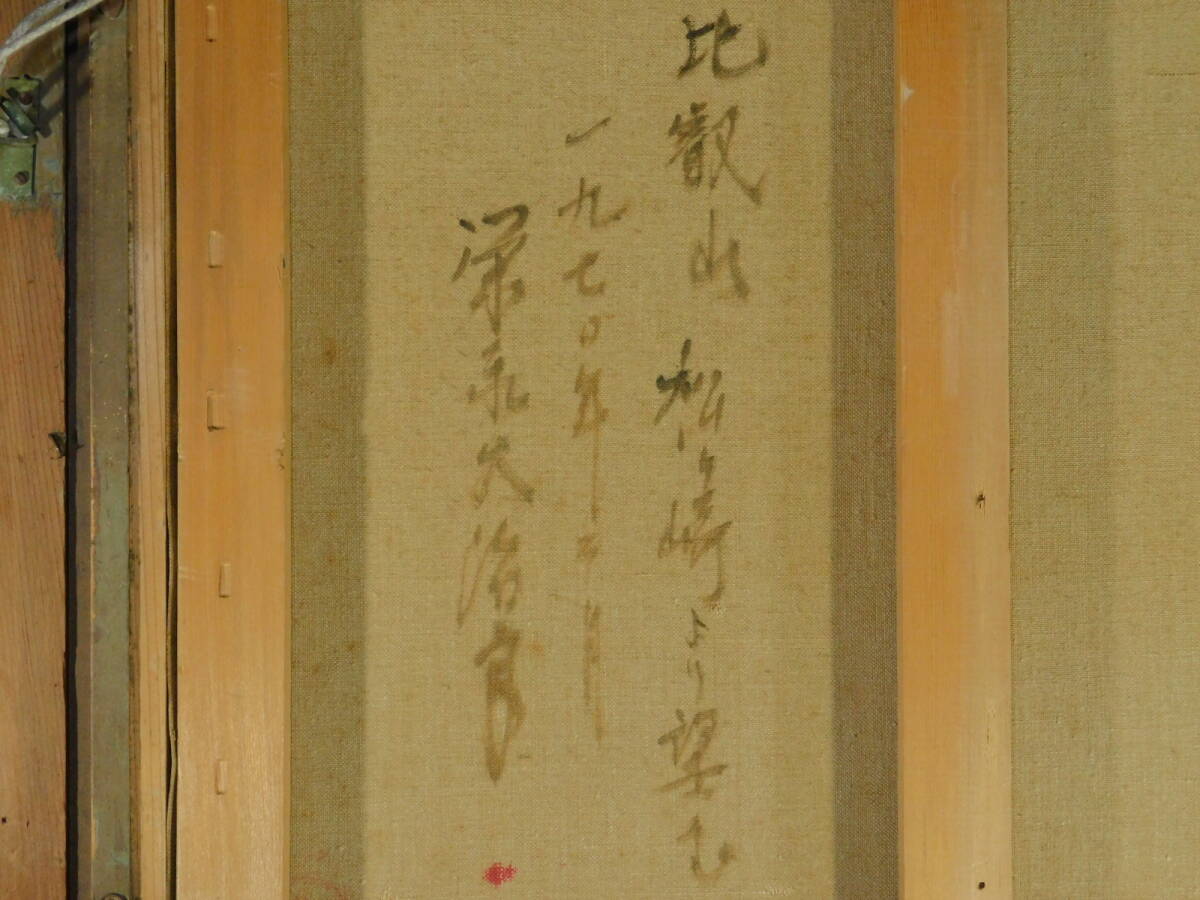 比叡山 松ヶ崎より望む
一九七〇年二月
栄永大治良